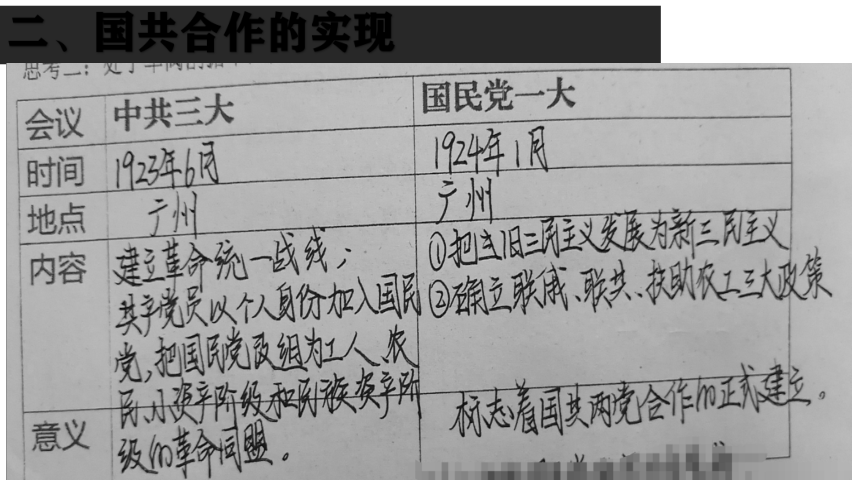 二、国共合作的实现
会议 中共三大 国民党一大
时间 1923年6月 1924年1月
地点 广州 广州
内容 建立革命统一战线；
共产党员以个人身份加入国民
党，把国民党改组为工人、农
民、小资产阶级和民族资产阶
级的革命同盟。
①把旧三民主义发展为新三民主义
②确立联俄、联共、扶助农工三大政策
意义
标志着国共两党合作的正式建立。